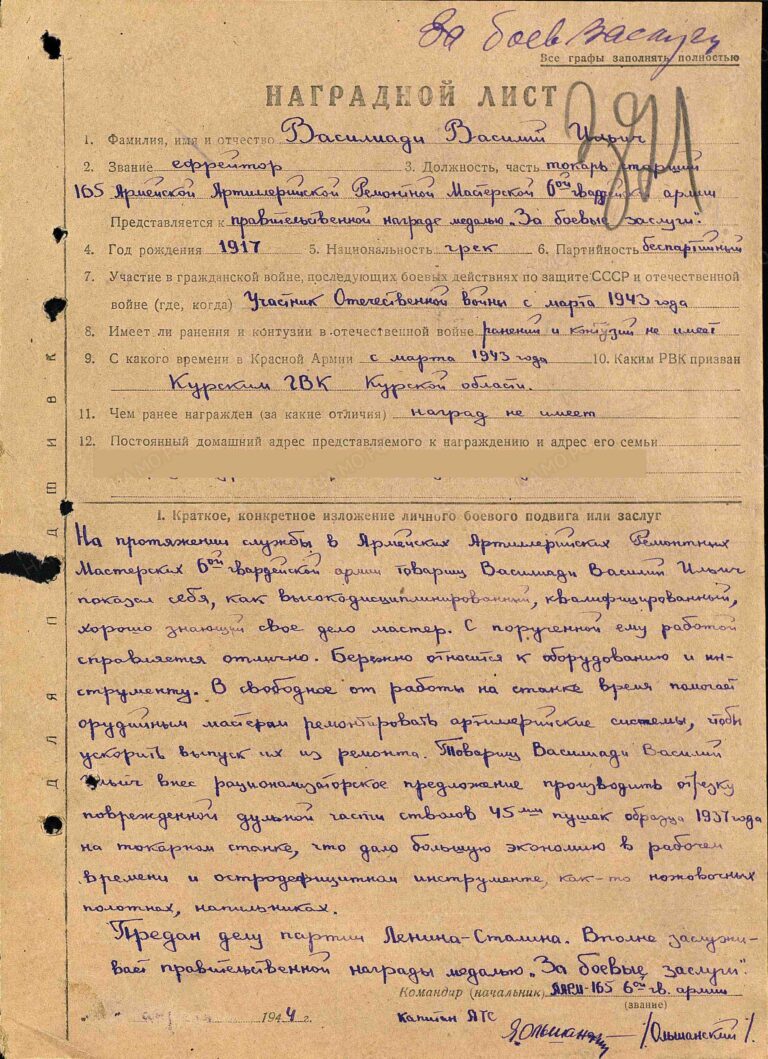 За боев заслуги
Все графы заполнять полностью
НАГРАДНОЙ ЛИСТ
1. Фамилия, имя и отчество Василиади Василий Ильич
2. Звание ефрейтор 3. Должность, часть токарь старший
165 Армейской Артиллерийской Ремонтной Мастерской 6ой гвардейск армии
Представляется к правительственной награде медалью „За боевые заслуги".
4. Год рождения 1917 5. Национальность грек 6. Партийность беспартийный
7. Участие в гражданской войне, последующих боевых действиях по защите СССР и отечественной
войне (где, когда) Участник Отечественной войны с марта 1943 года
8. Имеет ли ранения и контузии в отечественной войне ранений и контузий не имеет
9. С какого времени в Красной Армии с марта 1943 года 10. Каким РВК призван
Курским ГВК Курской области.
11. Чем ранее награжден (за какие отличия) наград не имеет
12. Постоянный домашний адрес представляемого к награждению и адрес его семьи
I. Краткое, конкретное изложение личного боевого подвига или заслуг
На протяжении службы в Армейских Артиллерийских Ремонтных
Мастерских 6ой гвардейской армии товарищ Василиади Василий Ильич
показал себя, как высокодисциплинированный, квалифицированный,
хорошо знающий свое дело мастер. С порученной ему работой
справляется отлично. Бережно относится к оборудованию и ин-
струменту. В свободное от работы на станке время помогает
орудийным мастерам ремонтировать артиллерийские системы, чтобы
ускорить выпуск их из ремонта. Товарищ Василиади Василий
Ильич внес рационализаторское предложение производить отрезку
поврежденной дульной части стволов 45 мм пушек образца 1937 года
на токарном станке, что дало большую экономию в рабочем
времени и остродефицитном инструменте, как-то ножовочных
полотнах, напильниках.
Предан делу партии Ленина-Сталина. Вполне заслужи-
вает правительственной награды медалью „За боевые заслуги".
Командир (начальник) ААРМ-165 6ой гв. армии
(звание)
апреля 1944 г. капитан АТС
Я.Ольшанский /Ольшанский/.
ДЛЯ ПОДШИВКИ